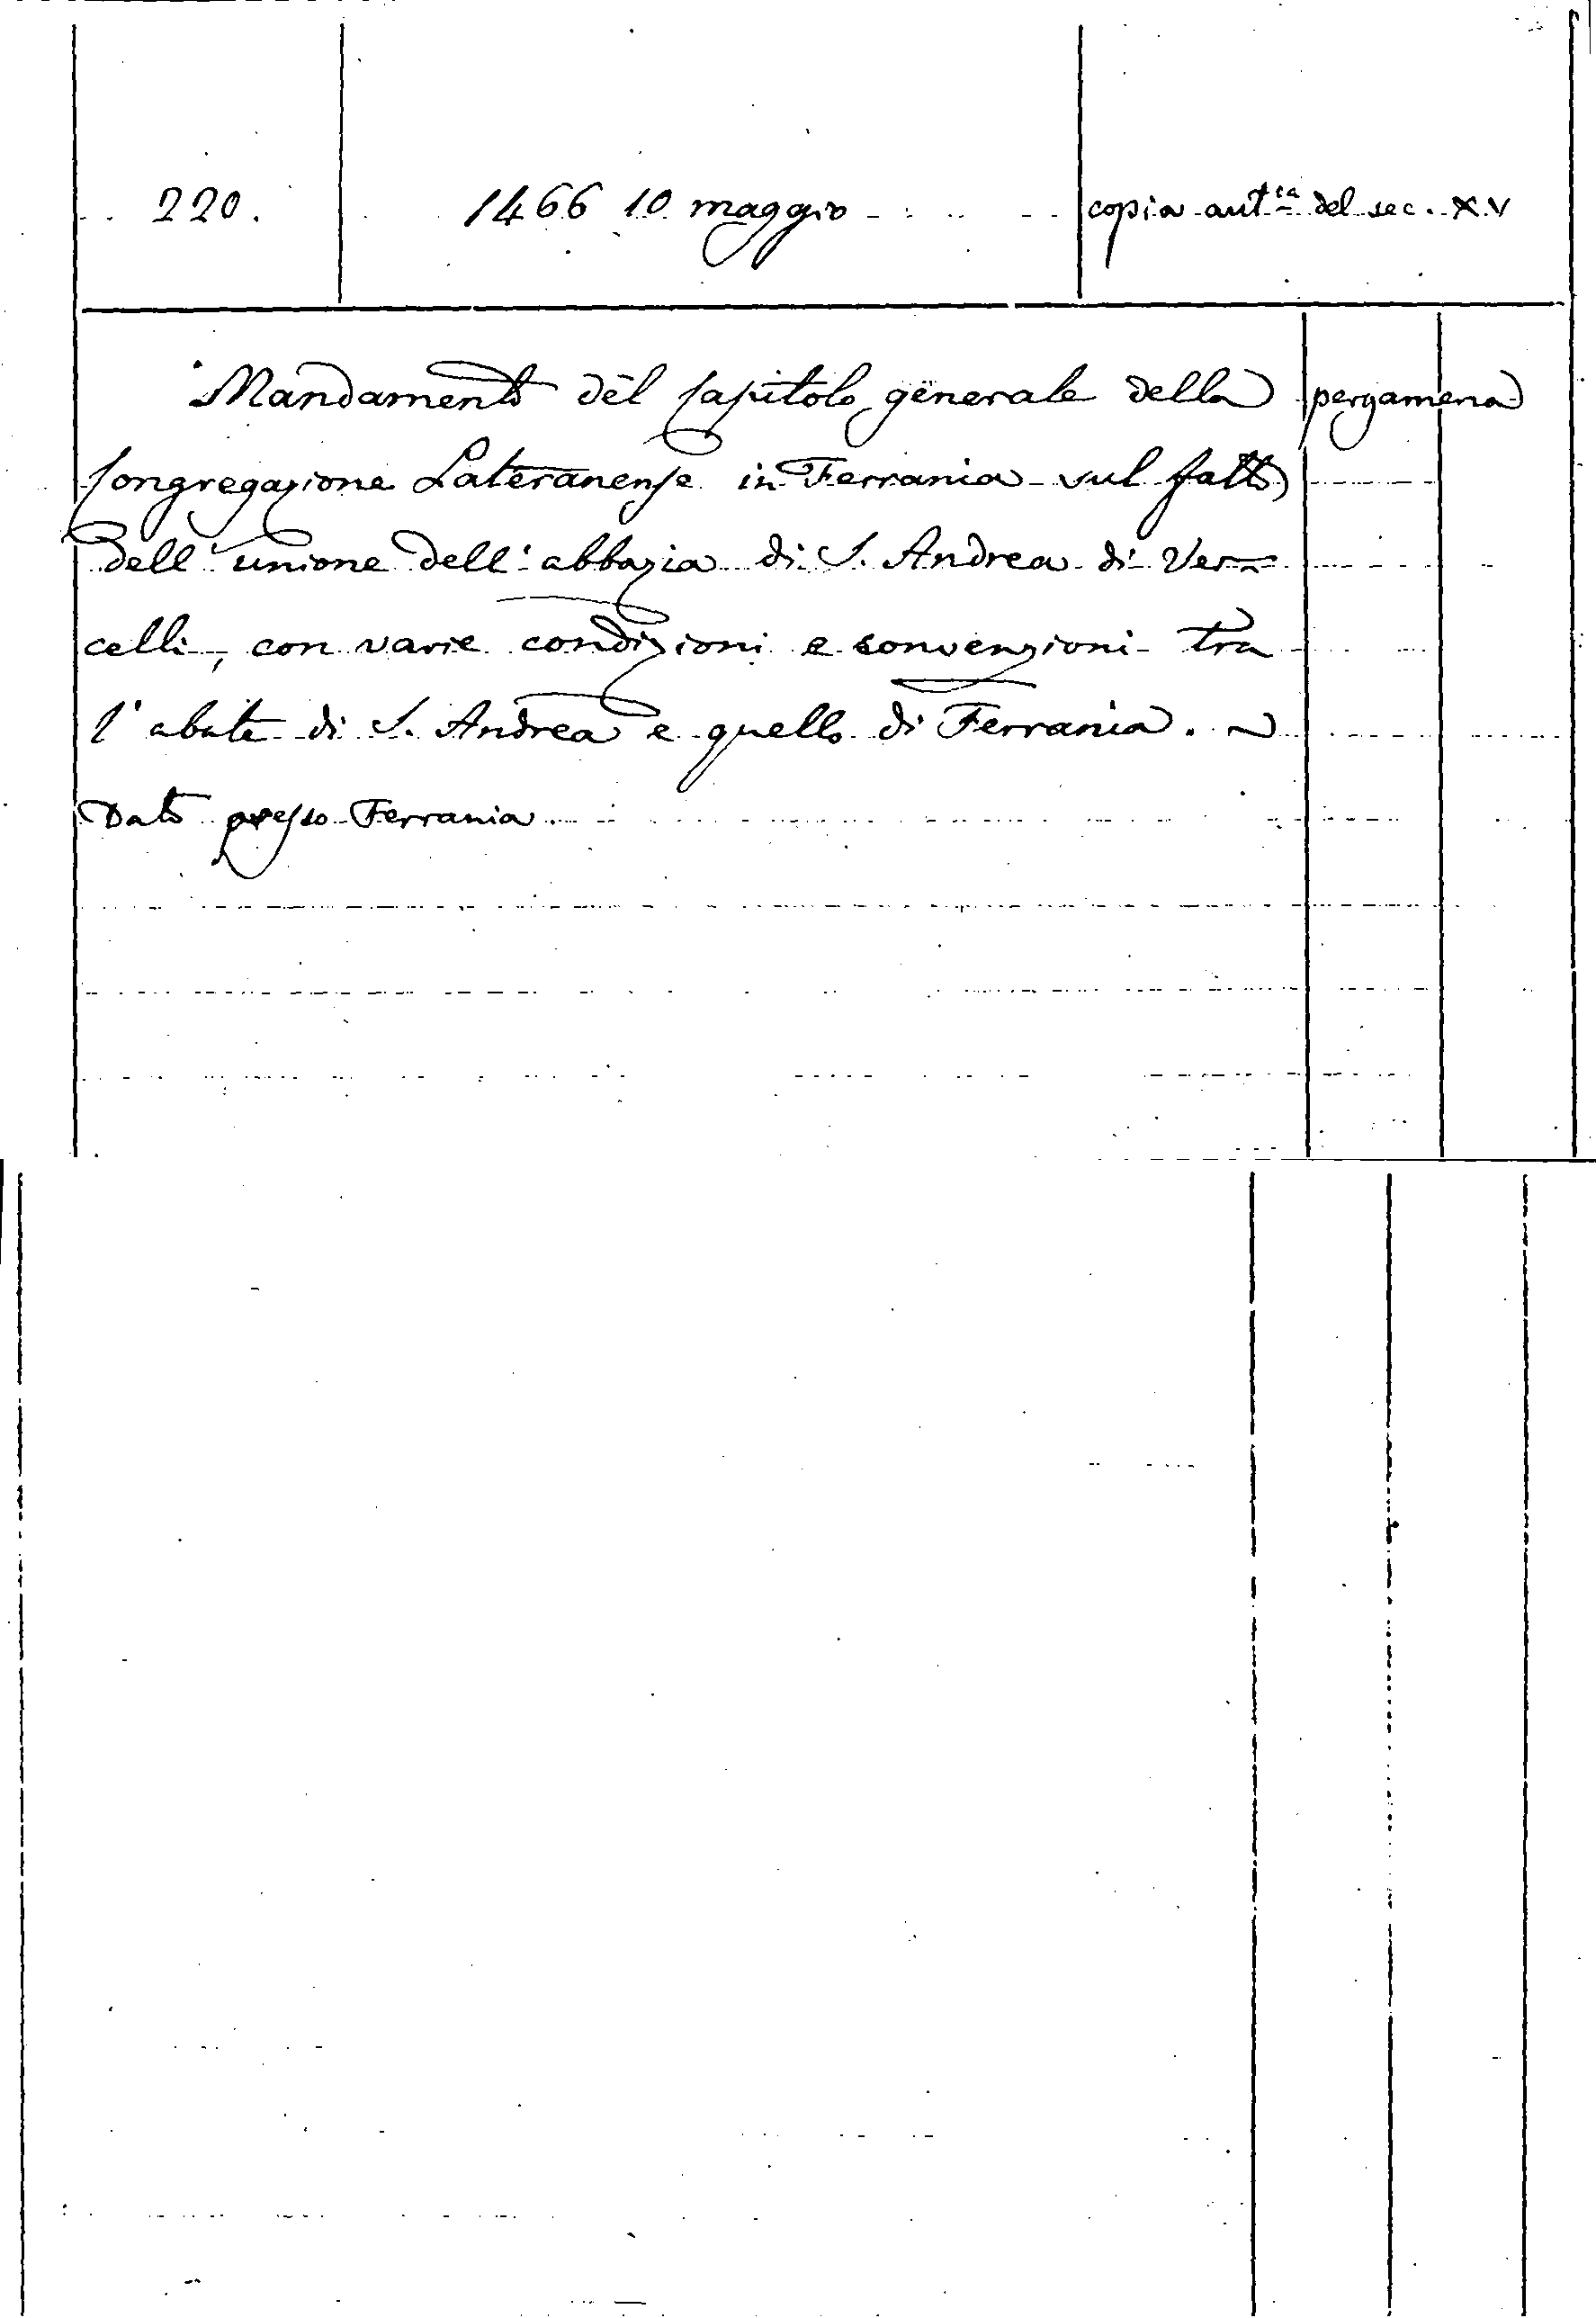 220. 1466 10 maggio copia aut.ca del sec. XV
Mandamento del Capitolo generale della pergamena
Congregazione Lateranense in Ferrania sul fatto
dell'unione dell'abbazia di S. Andrea di Ver-
celli, con varie condizioni e convenzioni tra
l'abate di S. Andrea e quello di Ferrania. ~
Dato presso Ferrania.